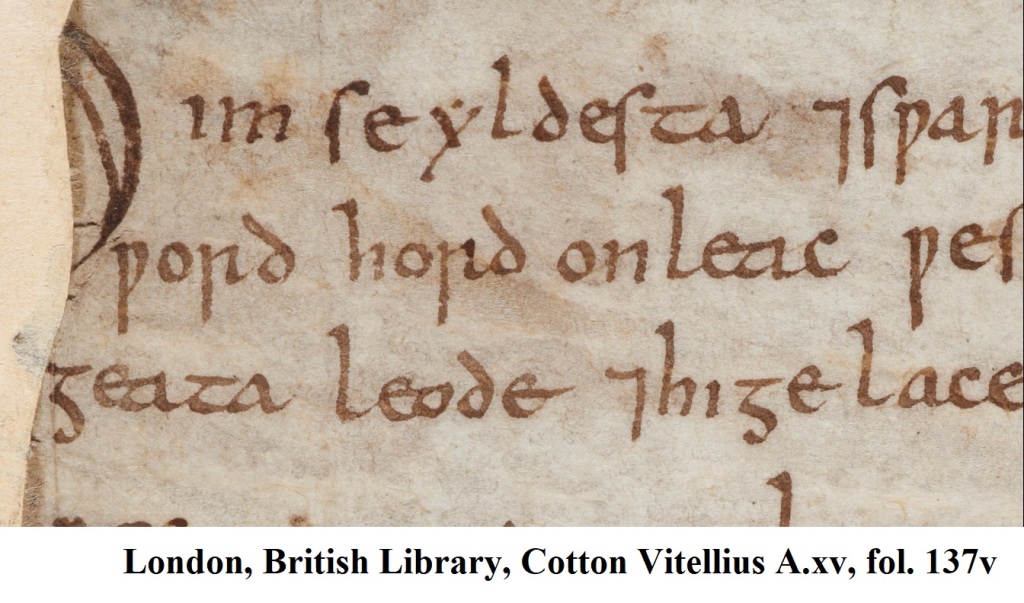 Him se yldesta ⁊sƿar
ƿord hord onleac ƿes
geata leode ⁊hige lace
London, British Library, Cotton Vitellius A.xv, fol. 137v